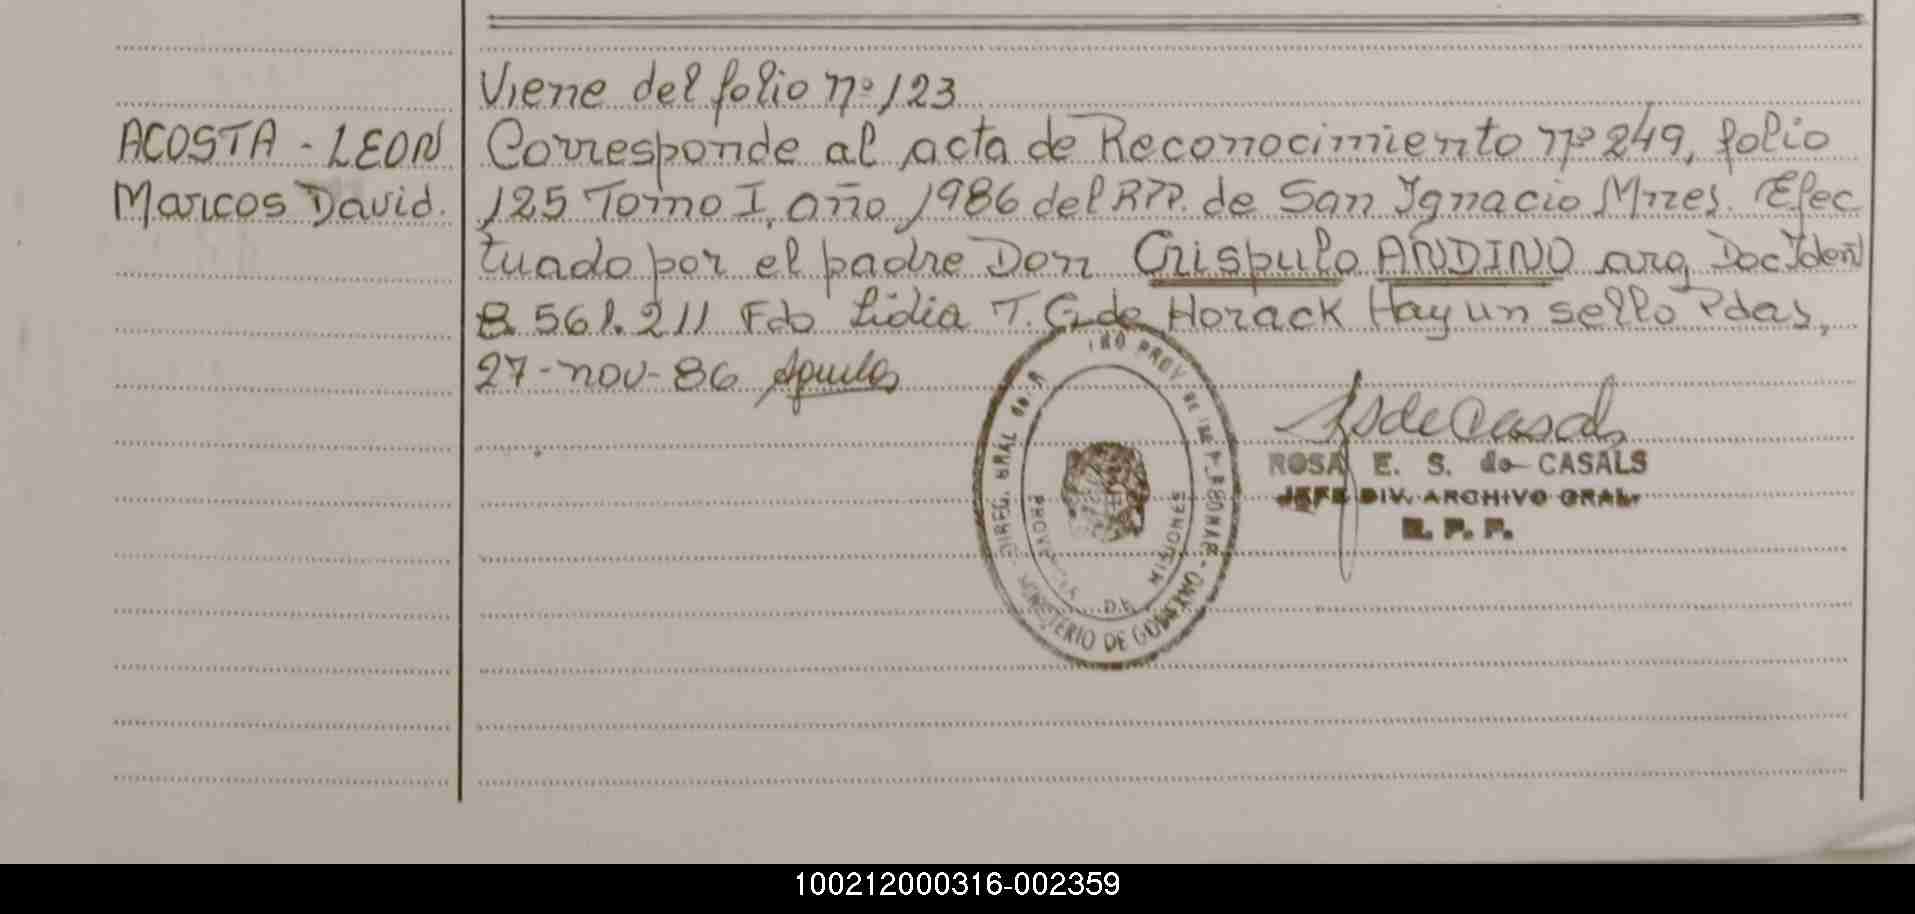 Viene del folio nº 123
ACOSTA - LEON
Marcos David.
Corresponde al acta de Reconocimiento nº 249, folio
125 Tomo I, año 1986 del RPP. de San Ignacio Mnes. Efec
tuado por el padre Don Crispulo ANDINO arg, Doc Iden
8.561.211 Fdo Lidia T. G. de Horack Hay un sello Pdas,
27-nov-86
DIREC. GRAL de
PROV DE
MINISTERIO DE GOBIERNO
DE
MISIONES
ROSA E. S. de CASALS
JEFE DIV. ARCHIVO GRAL.
R. P. P.
100212000316-002359